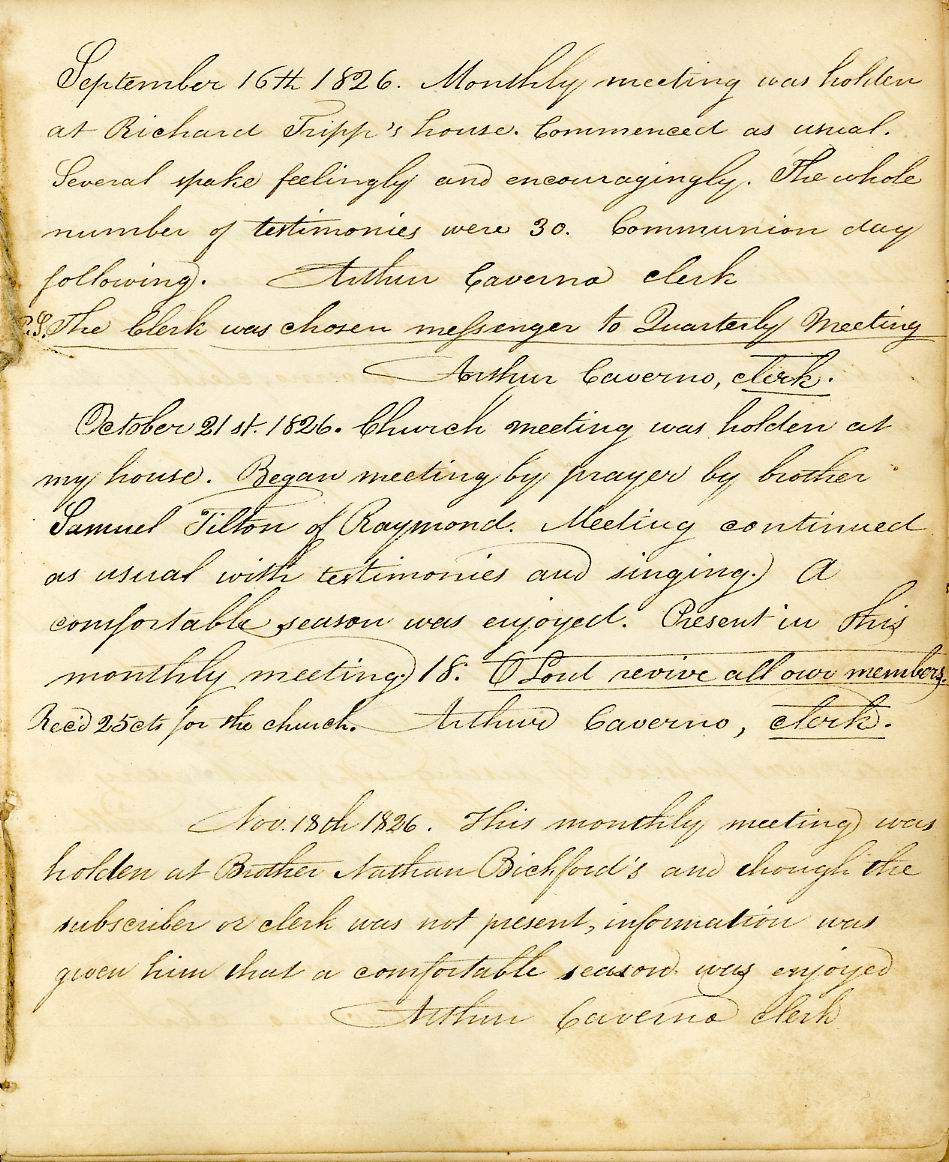 September 16th 1826. Monthly meeting was holden
at Richard Tripp's house. Commenced as usual.
Several spake feelingly and encouragingly. The whole
number of testimonies were 30. Communion day
following. Arthur Caverno clerk
P.S. The Clerk was chosen messenger to Quarterly Meeting
Arthur Caverno, clerk.
October 21st. 1826. Church meeting was holden at
my house. Began meeting by prayer by brother
Samuel Tilton of Raymond. Meeting continued
as usual with testimonies and singing. A
comfortable season was enjoyed. Present in this
monthly meeting 18. O Lord revive all our members.
Rec'd 25cts for the church. Arthur Caverno, clerk.
Nov. 18th 1826. This monthly meeting was
holden at Brother Nathan Bickford's and though the
subscriber or clerk was not present, information was
given him that a comfortable season was enjoyed
Arthur Caverno clerk